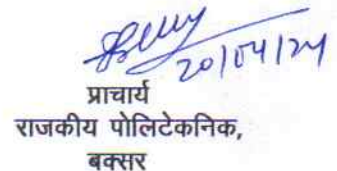 20/04/24
प्राचार्य
राजकीय पोलिटेकनिक,
बक्सर